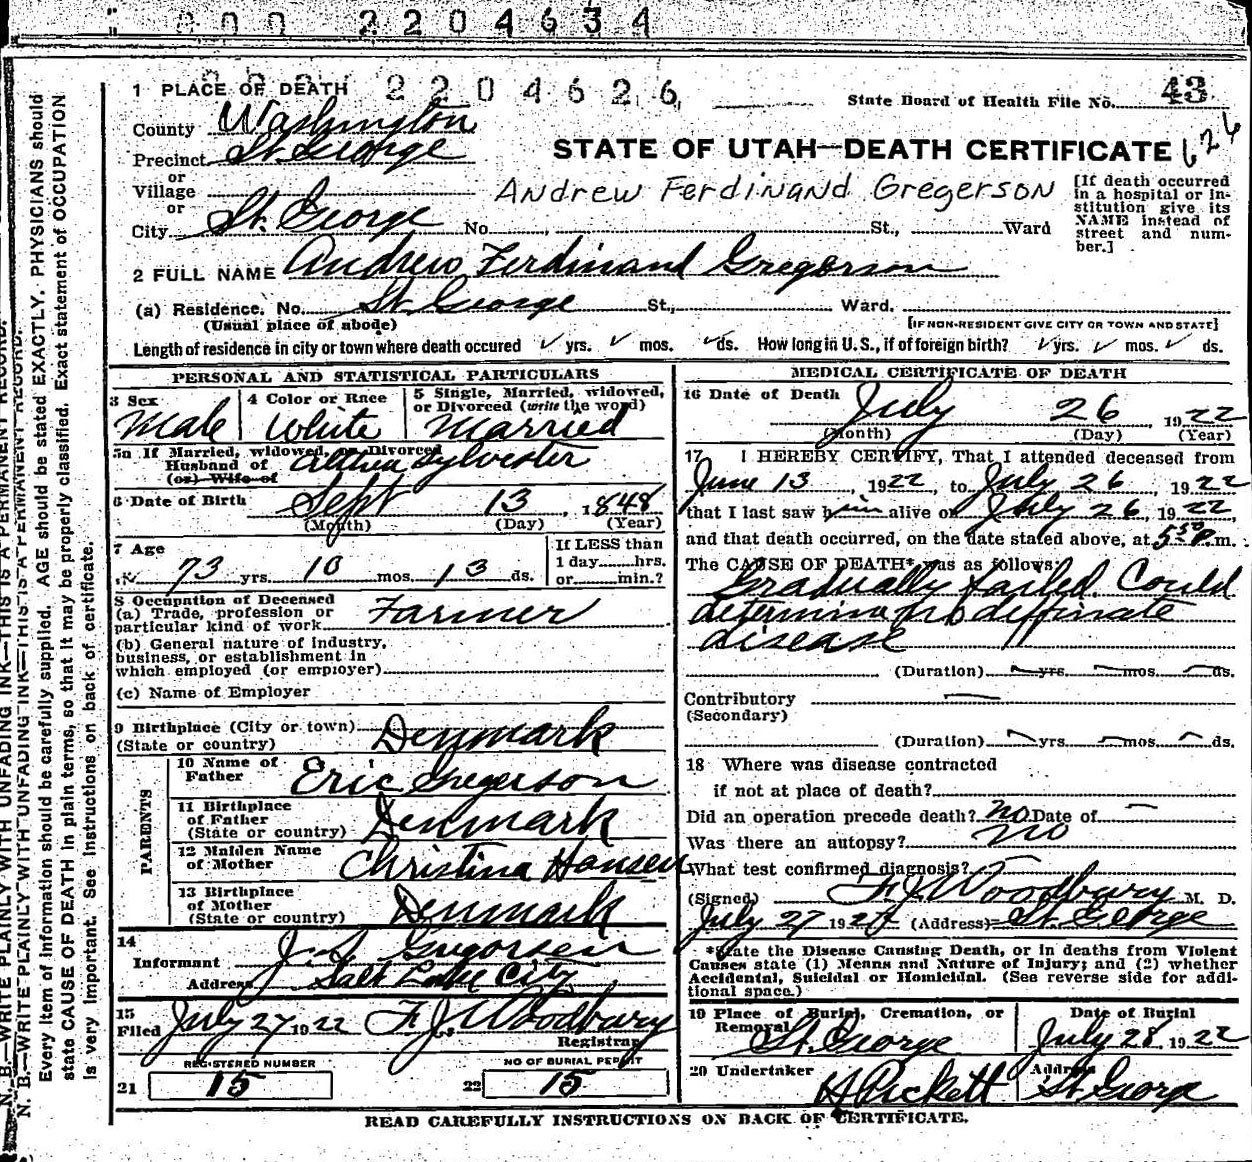 000 2204634
000 2204626
1 PLACE OF DEATH
State Board of Health File No. 43
626
County Washington
Precinct St. George
or
Village
or
City St. George No. St., Ward
STATE OF UTAH—DEATH CERTIFICATE
Andrew Ferdinand Gregerson
[If death occurred in a hospital or institution give its NAME instead of street and number.]
2 FULL NAME Andrew Ferdinand Gregerson
(a) Residence. No. St. George St., Ward.
(Usual place of abode)
[IF NON-RESIDENT GIVE CITY OR TOWN AND STATE]
Length of residence in city or town where death occured ✓ yrs. ✓ mos. ✓ ds. How long in U. S., if of foreign birth? ✓ yrs. ✓ mos. ✓ ds.
PERSONAL AND STATISTICAL PARTICULARS
3 Sex Male
4 Color or Race White
5 Single, Married, widowed, or Divorced (write the word) Married
5a If Married, widowed, or Divorced
Husband of Althea Sylvester
(or) Wife of
6 Date of Birth Sept 13, 1848
(Month) (Day) (Year)
7 Age 73 yrs. 10 mos. 13 ds.
If LESS than
1 day hrs.
or min.?
8 Occupation of Deceased
(a) Trade, profession or
particular kind of work Farmer
(b) General nature of industry,
business, or establishment in
which employed (or employer)
(c) Name of Employer
9 Birthplace (City or town)
(State or country) Denmark
PARENTS
10 Name of
Father Eric Gregerson
11 Birthplace
of Father
(State or country) Denmark
12 Maiden Name
of Mother Christina Hansen
13 Birthplace
of Mother
(State or country) Denmark
14
Informant Gregorsen
Address Salt Lake City
15
Filed July 27 1922 F. J. Woodbury
Registrar
REGISTERED NUMBER
21 15
NO OF BURIAL PERMIT
22 15
MEDICAL CERTIFICATE OF DEATH
16 Date of Death July 26, 1922
(Month) (Day) (Year)
17 I HEREBY CERTIFY, That I attended deceased from
June 13, 1922, to July 26, 1922
that I last saw him alive on July 26, 1922,
and that death occurred, on the date stated above, at 5 30 P. m.
The CAUSE OF DEATH* was as follows:
Gradually failed. Could
determine no deffinate
disease
(Duration) yrs. mos. ds.
Contributory
(Secondary)
(Duration) yrs. mos. ds.
18 Where was disease contracted
if not at place of death?
Did an operation precede death? no Date of —
Was there an autopsy? no
What test confirmed diagnosis? —
(Signed) F. J. Woodbury M. D.
July 27 1922 (Address) St. George
*State the Disease Causing Death, or in deaths from Violent
Causes state (1) Means and Nature of Injury; and (2) whether
Accidental, Suicidal or Homicidal. (See reverse side for additional space.)
19 Place of Burial, Cremation, or
Removal St. George
Date of Burial
July 28. 1922
20 Undertaker H Pickett
Address St George
READ CAREFULLY INSTRUCTIONS ON BACK OF CERTIFICATE.
N. B.—WRITE PLAINLY WITH UNFADING INK—THIS IS A PERMANENT RECORD.
N. B.—WRITE PLAINLY WITH UNFADING INK—THIS IS A PERMANENT RECORD.
Every item of information should be carefully supplied. AGE should be stated EXACTLY. PHYSICIANS should
state CAUSE OF DEATH in plain terms, so that it may be properly classified. Exact statement of OCCUPATION
is very important. See Instructions on back of certificate.